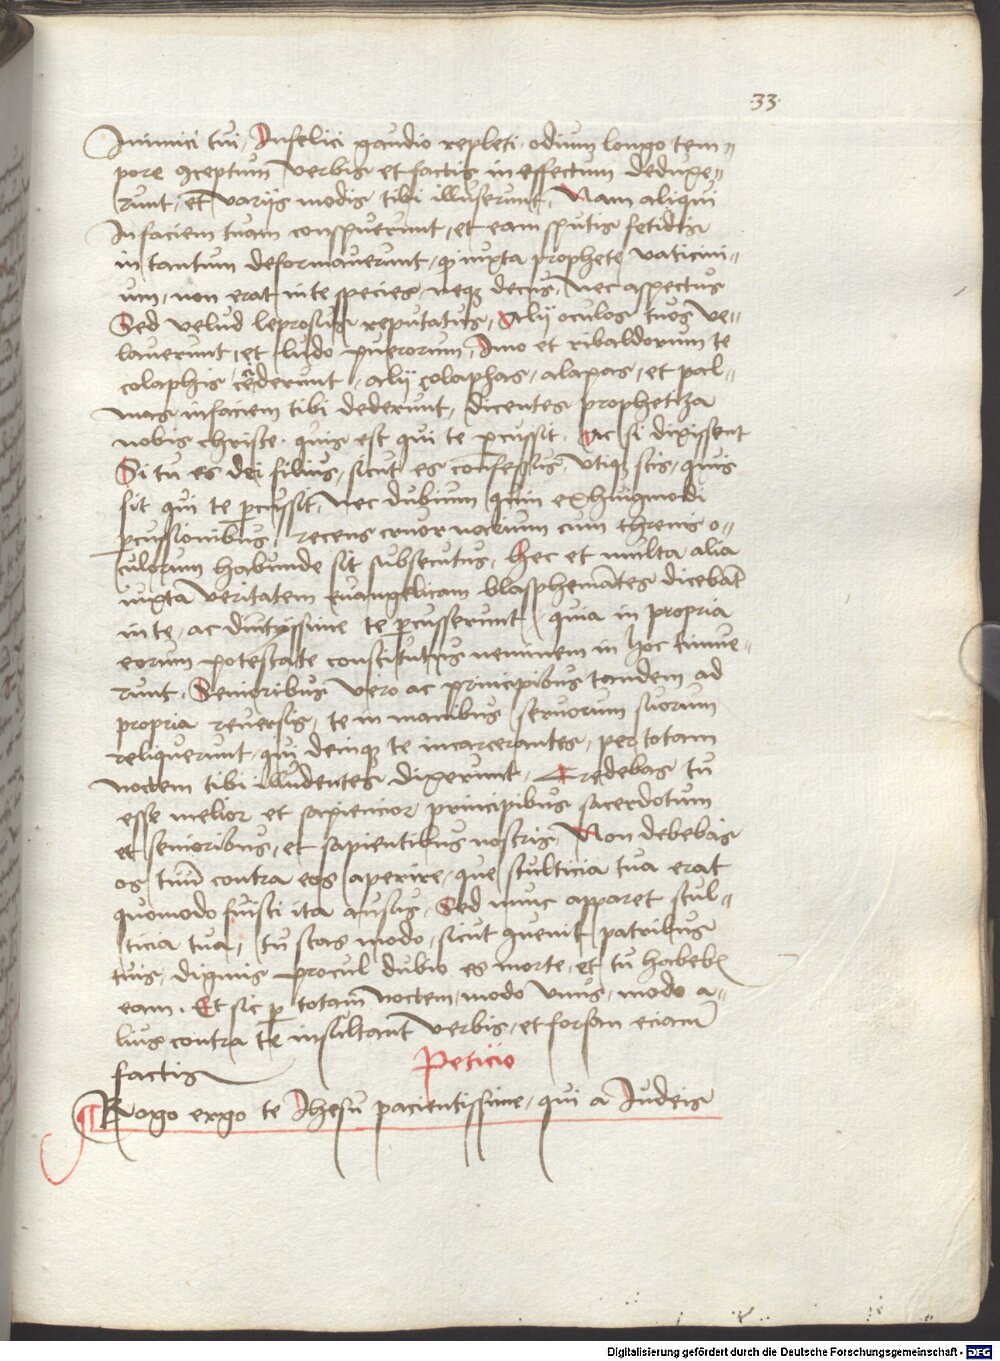 ·33·
Inimici tui, Infelici gaudio repleti, odium longo tem-
pore ꝯceptum verbis et factis in effectum deduxe-
runt, et variis modis tibi illuserunt, Nam aliqui
In faciem tuam conspuerunt, et eam sputis fetidis
in tantum deformauerunt, ꝙ iuxta prophete vaticini-
um, non erat in te species, neqꝫ decus, nec aspectus
Sed velud leprosus reputatus, Alij oculos tuos ve-
lauerunt, et ludo puerorum, Imo et ribaldorum te
colaphis cederunt, alij colaphas, alapas, et pal-
mas in faciem tibi dederunt, dicentes prophetiza
nobis christe, quis est qui te ꝑcussit, Ac si dixissent
Si tu es dei filius, sicut es confessus, vtiqꝫ scis, quis
sit qui te ꝑcussit, nec dubium quin ex huigmodi
ꝑcussionibus, recens cruor narium cum threnis o-
culorum habunde sit subsecutus, hec et multa alia
iuxta veritatem euangelicam blasphemātes dicebāt
in te, ac diutissime te ꝑcusserunt, quia in propria
eorum potestate constitutus neminem in hoc timue-
runt, Senioribus vero ac principibus tandem ad
propria reuersis, te in manibus seruorum suorum
reliquerunt, qui deinqꝫ te incarcerantes, per totam
noctem tibi illudentes dixerunt, Credebas tu
esse melior et sapiencior principibus sacerdotum
et senioribus, et sapientibus nostris, Non debebas
os tuū contra eos aperire, que stulticia tua erat
quomodo fuisti ita ausus, Sed nunc apparet stul-
ticia tua, tu stas modo, sicut ꝯuenit patribus
tuis, dignus procul dubio es morte, et tu habeb
eam. Et sic ꝑ totam noctem, modo vnus, modo a-
lius contra te insultant verbis, et forsan eciam
factis
Peticio
Rogo ergo te Ihesu pacientissime, qui a Iudeis
Digitalisierung gefördert durch die Deutsche Forschungsgemeinschaft - DFG